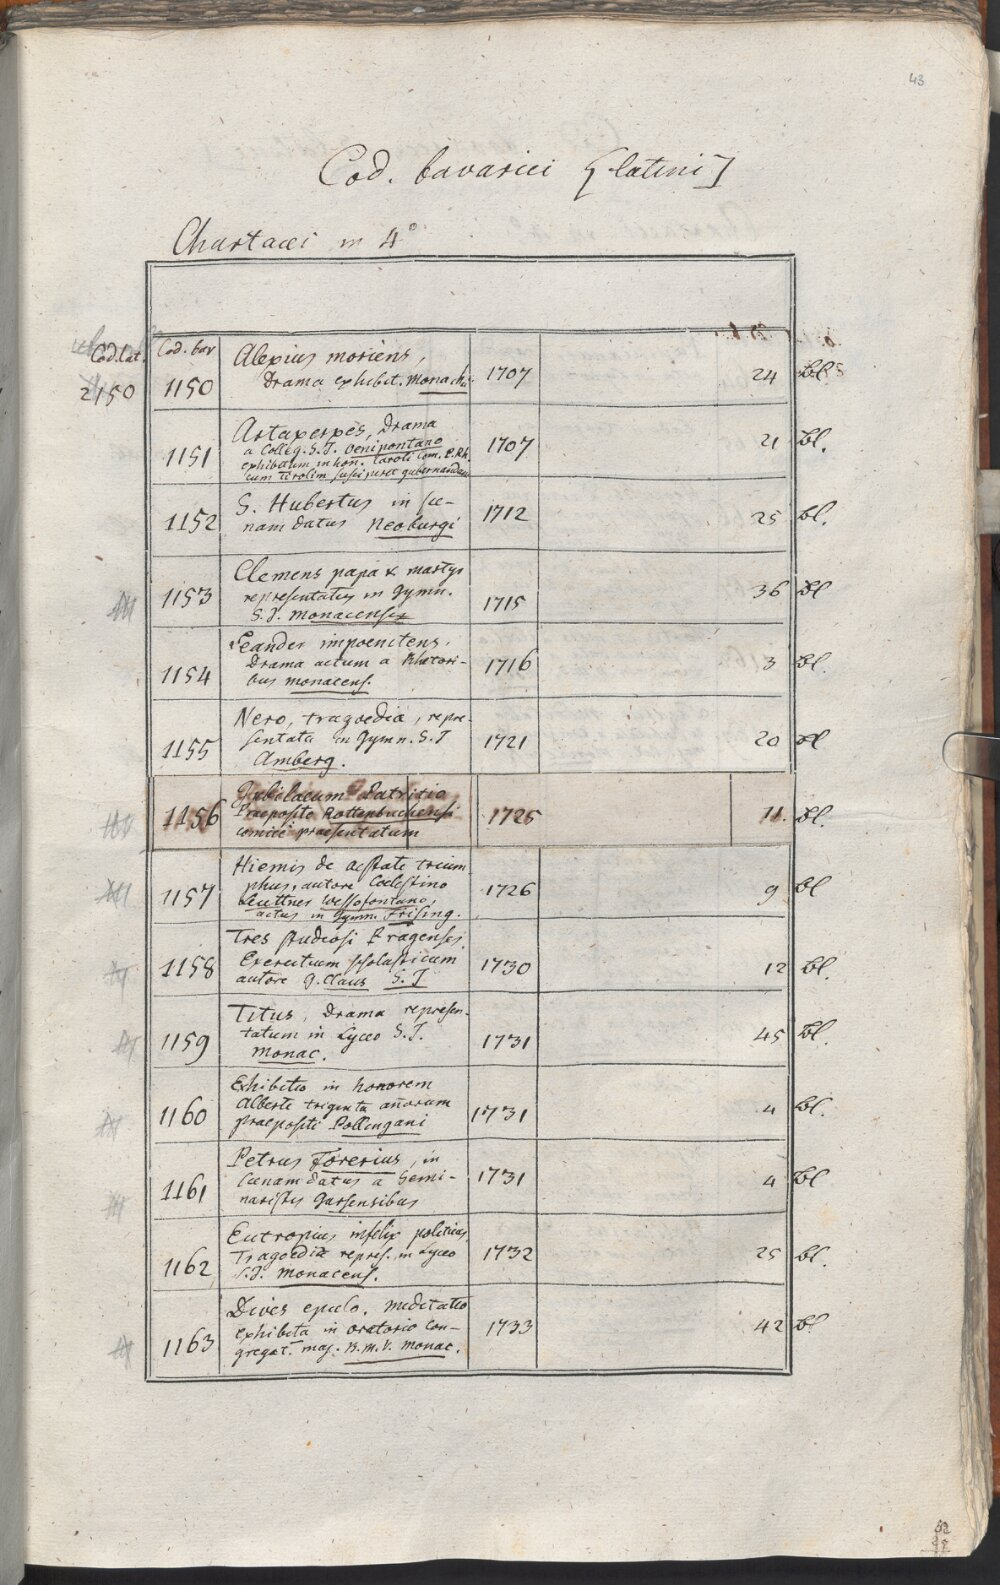 43
Cod. bavarici [latini]
Chartacei in 4°
Cod. lat. Cod. bav
2150 1150 Alexius moriens,
Drama exhibit. Monachii 1707 24 bl
1151 Artaxerxes, Drama
a Colleg. S. J. Oenipontano
exhibitum in hon. Caroli Com. P. Rh.
cum Tirolim susciperet gubernandam 1707 21 bl.
1152 S. Hubertus in sce-
nam datus Neoburgi 1712 25 bl.
1153 Clemens papa & martyr
representatus in Gymn.
S. J. Monacensi 1715 36 bl
1154 Leander impoenitens.
Drama actum a Rhetori-
bus monacens. 1716 3 bl.
1155 Nero, tragoedia, repre-
sentata in Gymn. S. J
Amberg. 1721 20 bl
1156 Jubilaeum Patritio
Praeposito Rottenbuchensi
comice praesentatum 1725 11. bl.
1157 Hiemis de aestate trium
phus, autore Coelestino
Leuttner Wessofontano,
actus in Gymn. Frising. 1726 9 bl
1158 Tres studiosi Pragenses.
Exercitium scholasticum
autore G. Claus S. J 1730 12 bl.
1159 Titus, Drama represen-
tatum in Lyceo S. J.
Monac. 1731 45 bl.
1160 Exhibitio in honorem
Alberti triginta añorum
praepositi Pollingani 1731 4 bl.
1161 Petrus Forerius, in
scenam datus a Semi-
naristis Garsensibus 1731 4 bl
1162 Eutropius infelix politicus,
Tragoedia repres. in Lyceo
S. J. Monacens. 1732 25 bl.
1163 Dives epulo. meditatio
exhibita in oratorio con-
gregat. maj. B. M. V. Monac. 1733 42 bl